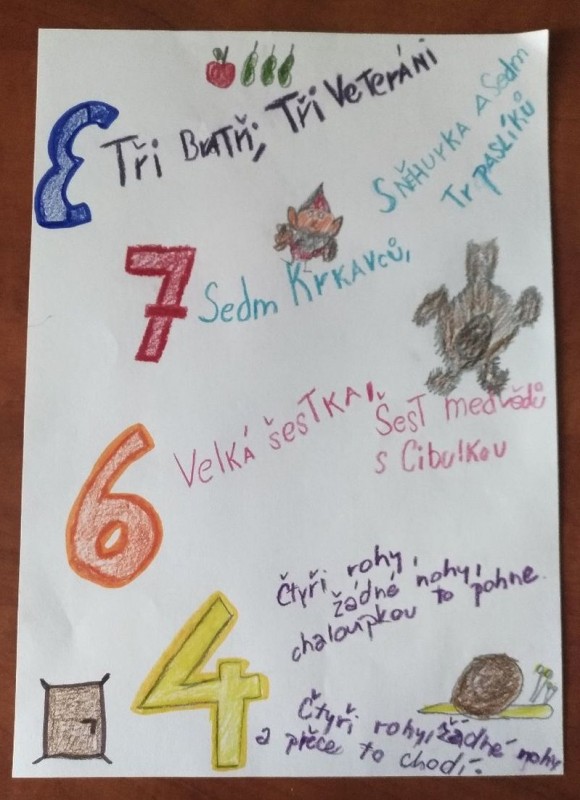 3
Tři Bratři, Tři Veteráni
Sněhurka a Sedm
Trpaslíků
7
Sedm Krkavců,
6
Velká šestka,
Šest medvědů
s Cibulkou
4
Čtyři rohy,
žádné nohy,
chaloupkou to pohne.
Čtyři rohy, žádné nohy
a přece to chodí.